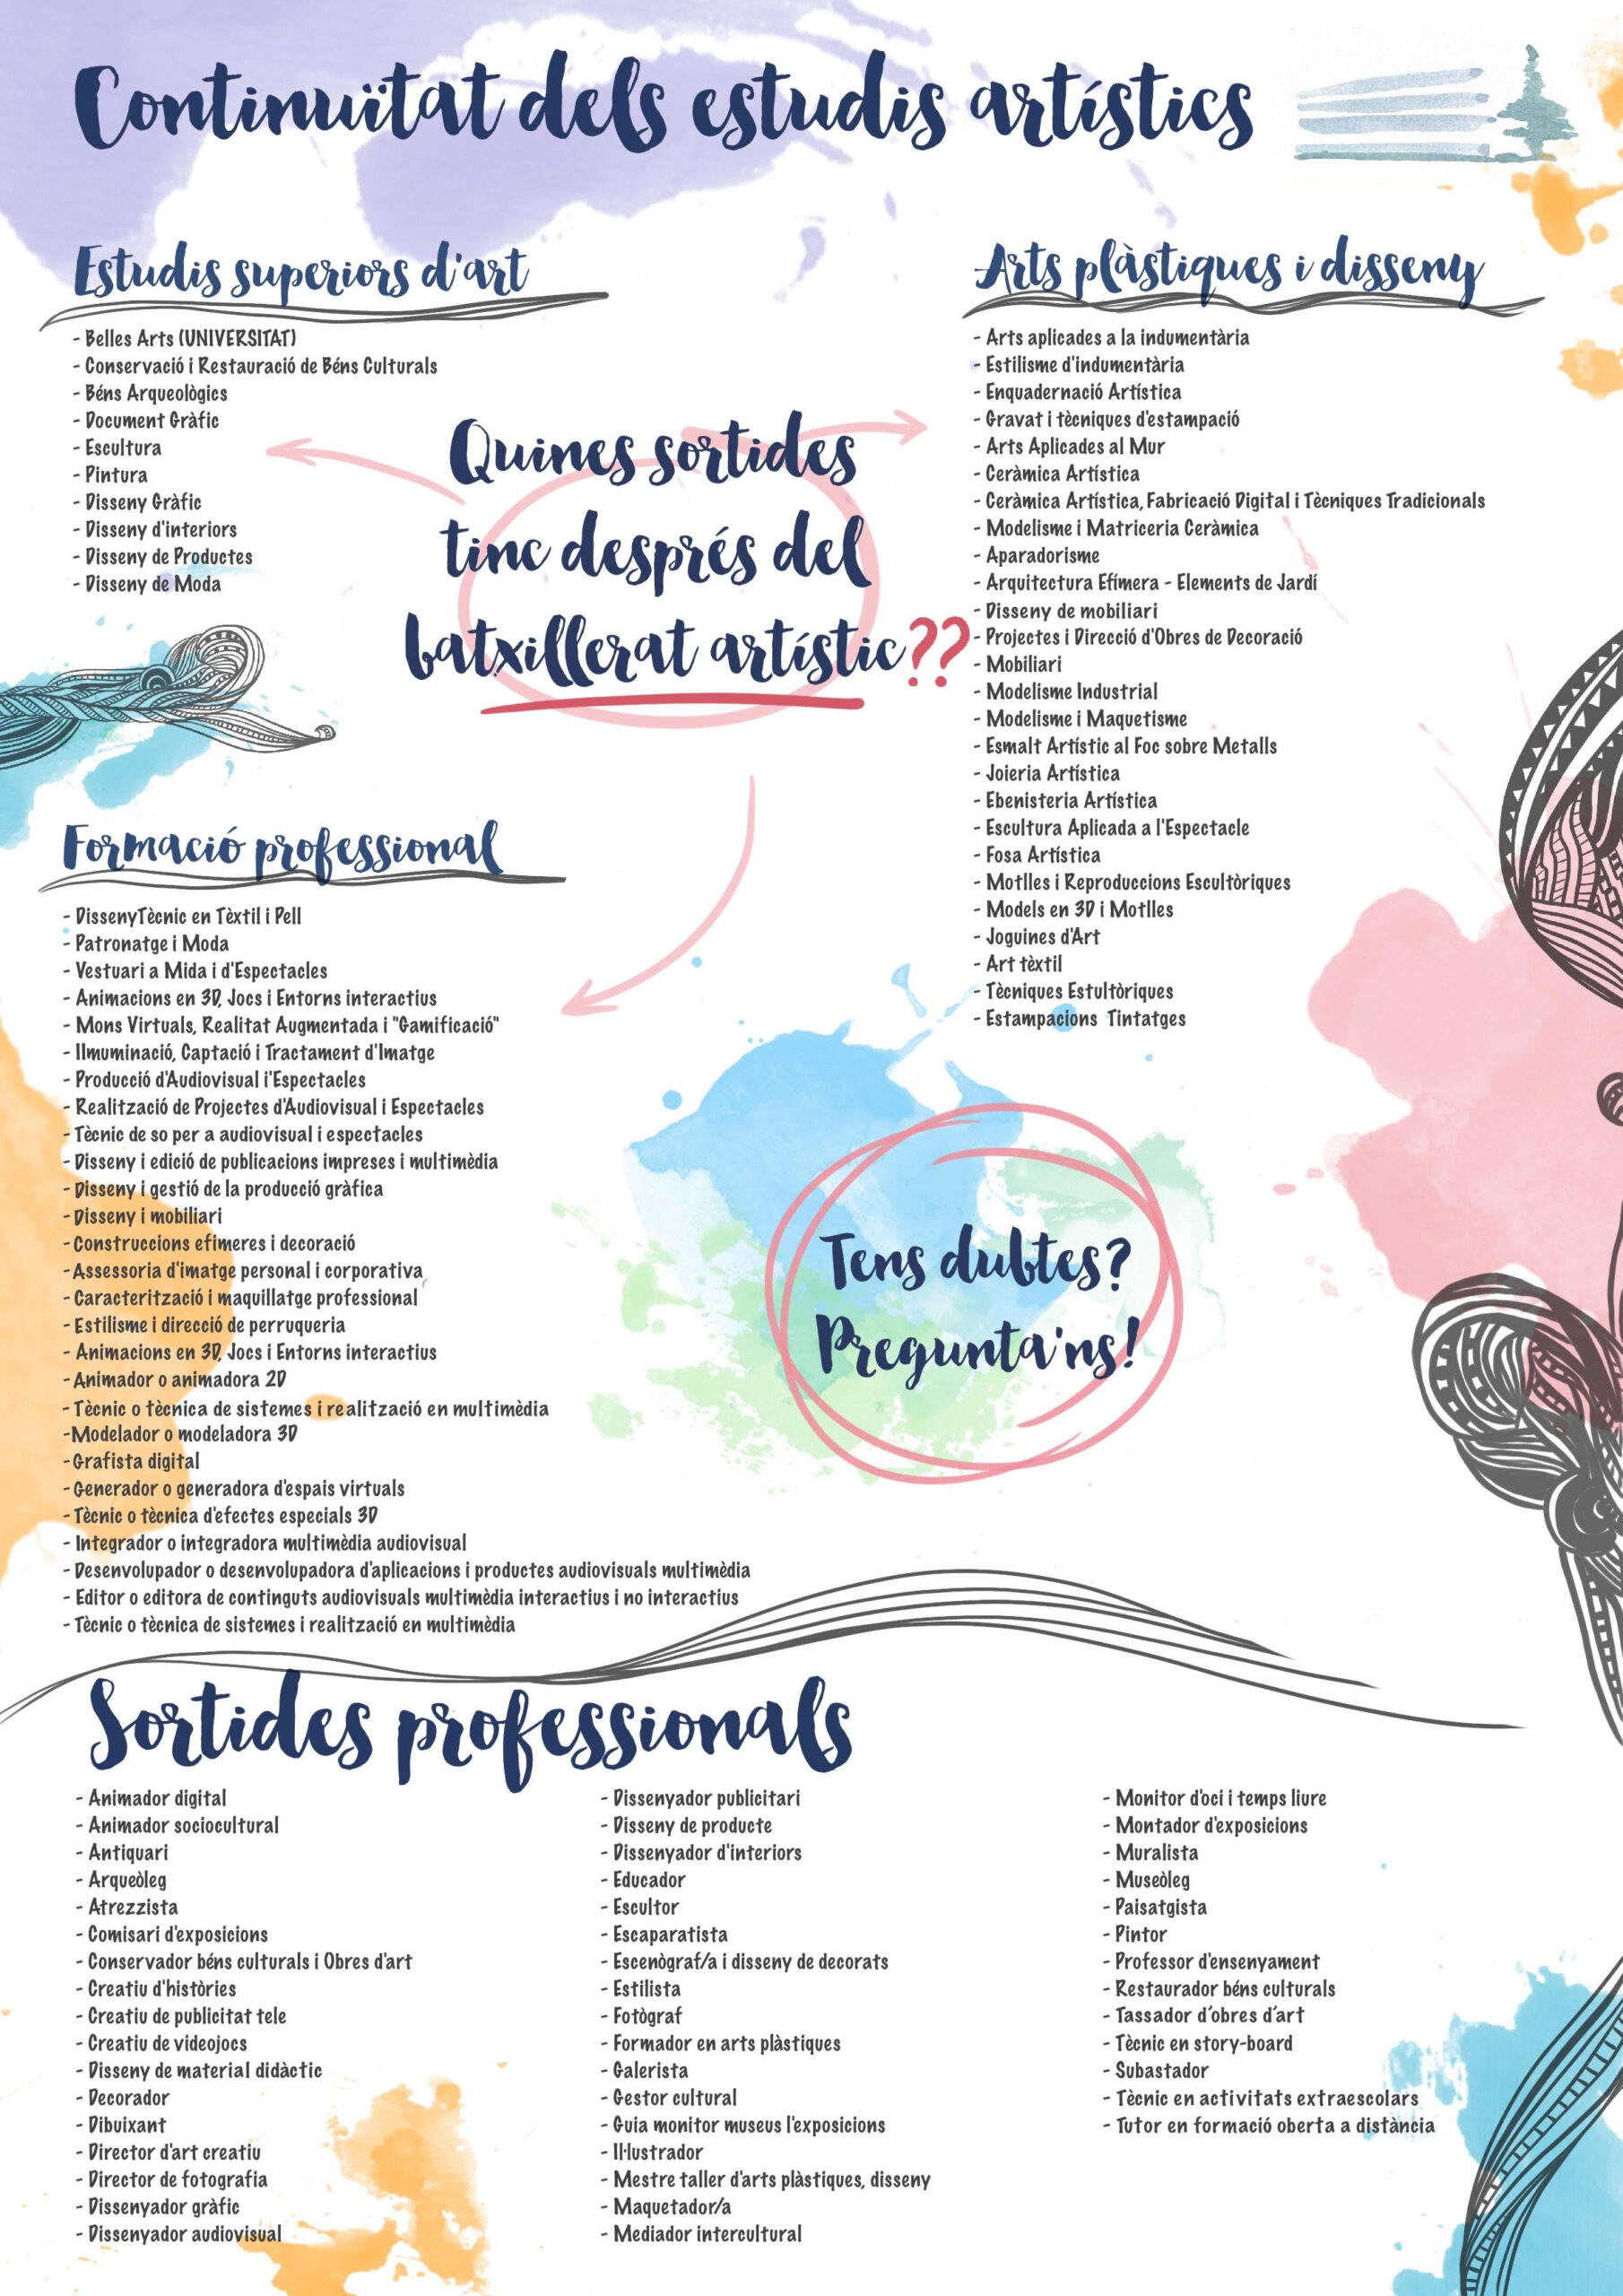 Continuïtat dels estudis artístics
Estudis superiors d'art
- Belles Arts (UNIVERSITAT)
- Conservació i Restauració de Béns Culturals
- Béns Arqueològics
- Document Gràfic
- Escultura
- Pintura
- Disseny Gràfic
- Disseny d'interiors
- Disseny de Productes
- Disseny de Moda
Quines sortides
tinc després del
batxillerat artístic??
Arts plàstiques i disseny
- Arts aplicades a la indumentària
- Estilisme d'indumentària
- Enquadernació Artística
- Gravat i tècniques d'estampació
- Arts Aplicades al Mur
- Ceràmica Artística
- Ceràmica Artística, Fabricació Digital i Tècniques Tradicionals
- Modelisme i Matriceria Ceràmica
- Aparadorisme
- Arquitectura Efímera - Elements de Jardí
- Disseny de mobiliari
- Projectes i Direcció d'Obres de Decoració
- Mobiliari
- Modelisme Industrial
- Modelisme i Maquetisme
- Esmalt Artístic al Foc sobre Metalls
- Joieria Artística
- Ebenisteria Artística
- Escultura Aplicada a l'Espectacle
- Fosa Artística
- Motlles i Reproduccions Escultòriques
- Models en 3D i Motlles
- Joguines d'Art
- Art tèxtil
- Tècniques Estultòriques
- Estampacions Tintatges
Formació professional
- DissenyTècnic en Tèxtil i Pell
- Patronatge i Moda
- Vestuari a Mida i d'Espectacles
- Animacions en 3D, Jocs i Entorns interactius
- Mons Virtuals, Realitat Augmentada i "Gamificació"
- Ilmuminació, Captació i Tractament d'Imatge
- Producció d'Audiovisual i'Espectacles
- Realització de Projectes d'Audiovisual i Espectacles
- Tècnic de so per a audiovisual i espectacles
- Disseny i edició de publicacions impreses i multimèdia
- Disseny i gestió de la producció gràfica
- Disseny i mobiliari
- Construccions efimeres i decoració
- Assessoria d'imatge personal i corporativa
- Caracterització i maquillatge professional
- Estilisme i direcció de perruqueria
- Animacions en 3D, Jocs i Entorns interactius
- Animador o animadora 2D
- Tècnic o tècnica de sistemes i realització en multimèdia
-Modelador o modeladora 3D
-Grafista digital
-Generador o generadora d'espais virtuals
- Tècnic o tècnica d'efectes especials 3D
- Integrador o integradora multimèdia audiovisual
- Desenvolupador o desenvolupadora d'aplicacions i productes audiovisuals multimèdia
- Editor o editora de continguts audiovisuals multimèdia interactius i no interactius
- Tècnic o tècnica de sistemes i realització en multimèdia
Tens dubtes?
Pregunta'ns!
Sortides professionals
- Animador digital
- Animador sociocultural
- Antiquari
- Arqueòleg
- Atrezzista
- Comisari d'exposicions
- Conservador béns culturals i Obres d'art
- Creatiu d'històries
- Creatiu de publicitat tele
- Creatiu de videojocs
- Disseny de material didàctic
- Decorador
- Dibuixant
- Director d'art creatiu
- Director de fotografia
- Dissenyador gràfic
- Dissenyador audiovisual
- Dissenyador publicitari
- Disseny de producte
- Dissenyador d'interiors
- Educador
- Escultor
- Escaparatista
- Escenògraf/a i disseny de decorats
- Estilista
- Fotògraf
- Formador en arts plàstiques
- Galerista
- Gestor cultural
- Guia monitor museus l'exposicions
- Il·lustrador
- Mestre taller d'arts plàstiques, disseny
- Maquetador/a
- Mediador intercultural
- Monitor d'oci i temps liure
- Montador d'exposicions
- Muralista
- Museòleg
- Paisatgista
- Pintor
- Professor d'ensenyament
- Restaurador béns culturals
- Tassador d'obres d'art
- Tècnic en story-board
- Subastador
- Tècnic en activitats extraescolars
- Tutor en formació oberta a distància